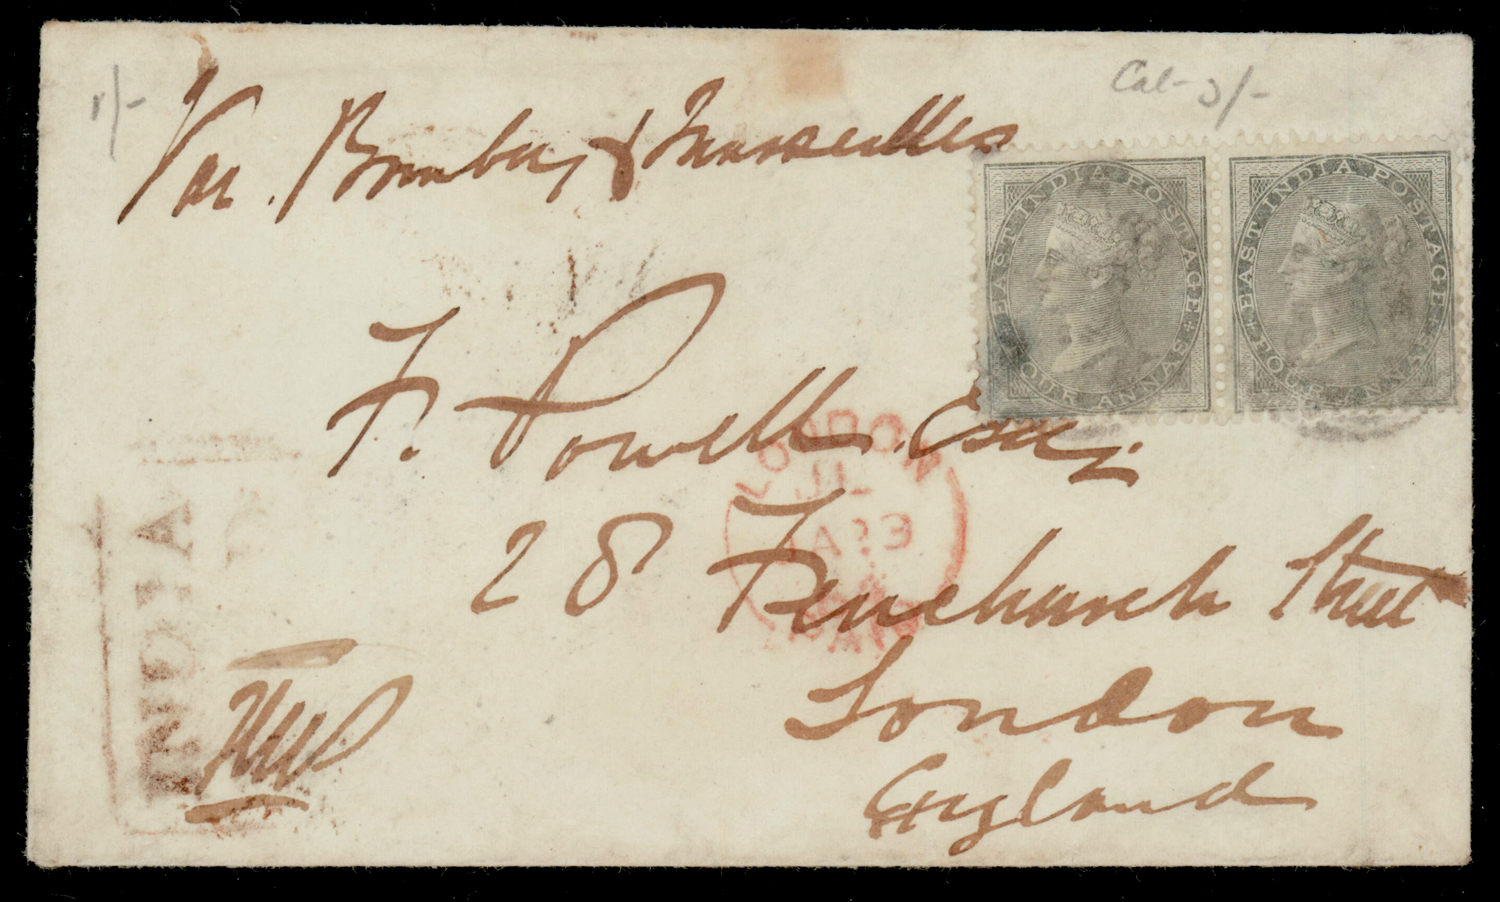 Via. Bombay & Marseilles
Cal- 3/-
EAST INDIA POSTAGE
FOUR ANNAS
EAST INDIA POSTAGE
FOUR ANNAS
F. Powell. Esq.
28 Fenchurch Street
London
England
LONDON
JL
INDIA